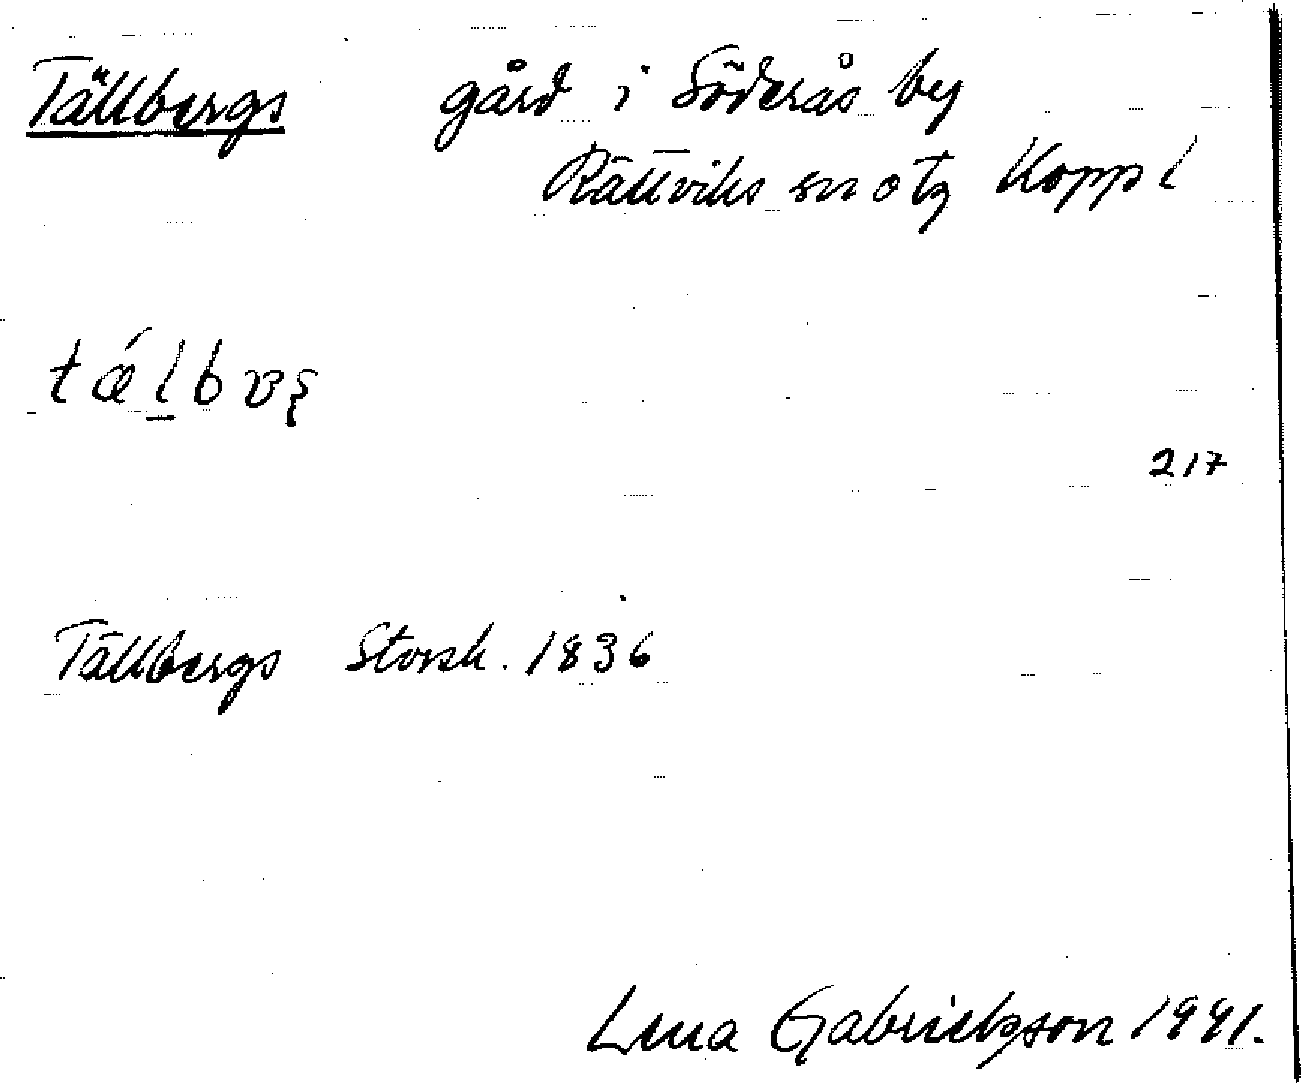 Tällbergs gård i Söderås by
Rättviks sn o tg Kopp l
217
Tällbergs Storsk. 1836
Lena Gabrielsson 1991.